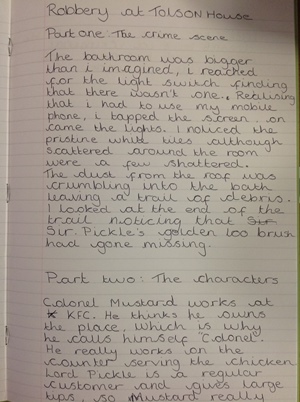 Robbery at TOLSON House
Part one: The crime scene
The bathroom was bigger
than i imagined, i reached
for the light switch finding
that there wasn't one. Realising
that i had to use my mobile
phone, i tapped the screen... on
came the lights. I noticed the
pristine white tiles although
scattered around the room
were a few shattered.
The dust from the roof was
crumbling into the bath
leaving a trail of debris.
I looked at the end of the
trail noticing that
Sir. Pickle's golden loo brush
had gone missing.
Part two: The characters
Colonel Mustard works at
KFC. He thinks he owns
the place, which is why
he calls himself "Colonel".
He really works on the
counter serving the chicken
Lord Pickle is a regular
customer and gives large
tips, so Mustard really